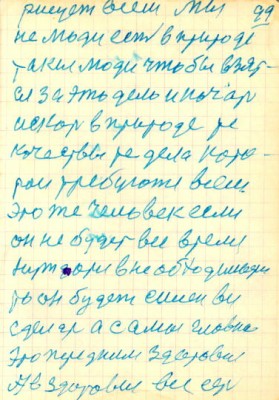 рисует всем мы 99
не люди есть в природе
таких люди чтобы взят
ся за это дело и начар
искар в природе ре
качествы ре дела кото
рои требуготи всем
это же человек если
он не будет все время
в необходимости
ръ он будет силен ви
сделар а самы главне
это перед ним здоровья
А в здоровли все сер